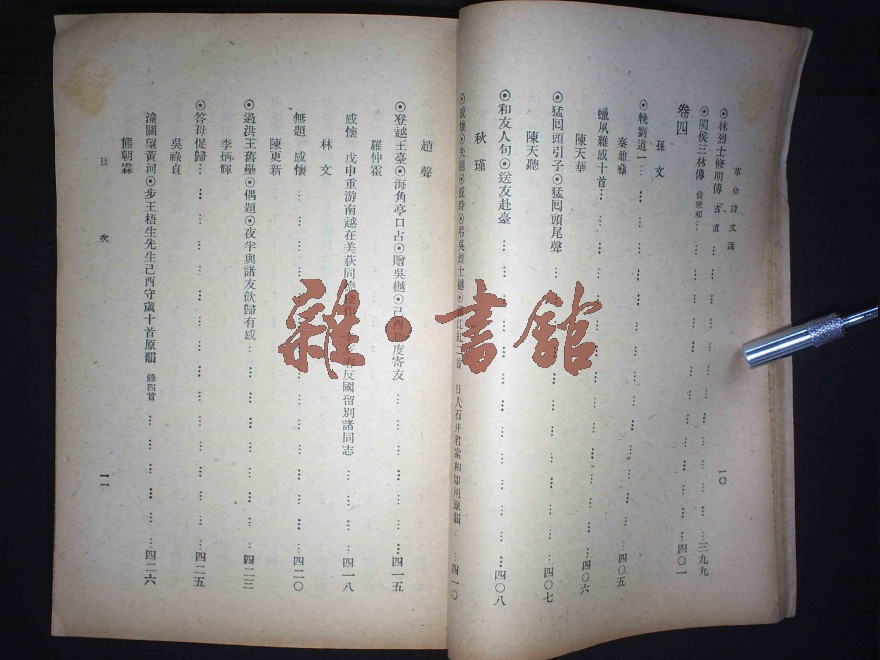 革命詩文選
一〇
⊙林烈士修明傳 古直 … … … … … …
⊙閩侯三林傳 … … … … … …三九九
卷四 … … … … … …四〇一
孫文
⊙輓劉道一… … … … … …四〇五
秦
蠟風雜感十首… … … … … …四〇六
陳天華
⊙猛回頭引子⊙猛回頭尾聲 … … … … … …四〇七
陳天聽
⊙和友人句⊙送友赴臺 … … … … … …四〇八
秋瑾
⊙感懷⊙失題⊙感時⊙弔吳烈士樾⊙ 江紅二首 日人石井君索和即用原韻 … …四一〇
趙聲
⊙登越王臺⊙海角亭口占⊙贈吳樾⊙己酉 度寄友 … … … … …四一五
羅仲霍
感懷 戊申重游南越在美荻同 反國留別諸同志 … … … …四一八
林文
無題 感懷 … … … … … …四二〇
陳更新
⊙過洪王舊壘⊙偶題⊙夜半與諸友飲歸有感 … … … … … …四二三
李炳輝
⊙答母促歸… … … … … …四二五
吳祿貞
潼關望黃河⊙步王梧生先生己酉守歲十首原韻 錄四首 … … … … … …四二六
熊朝霖
目次
一一
雜·書館